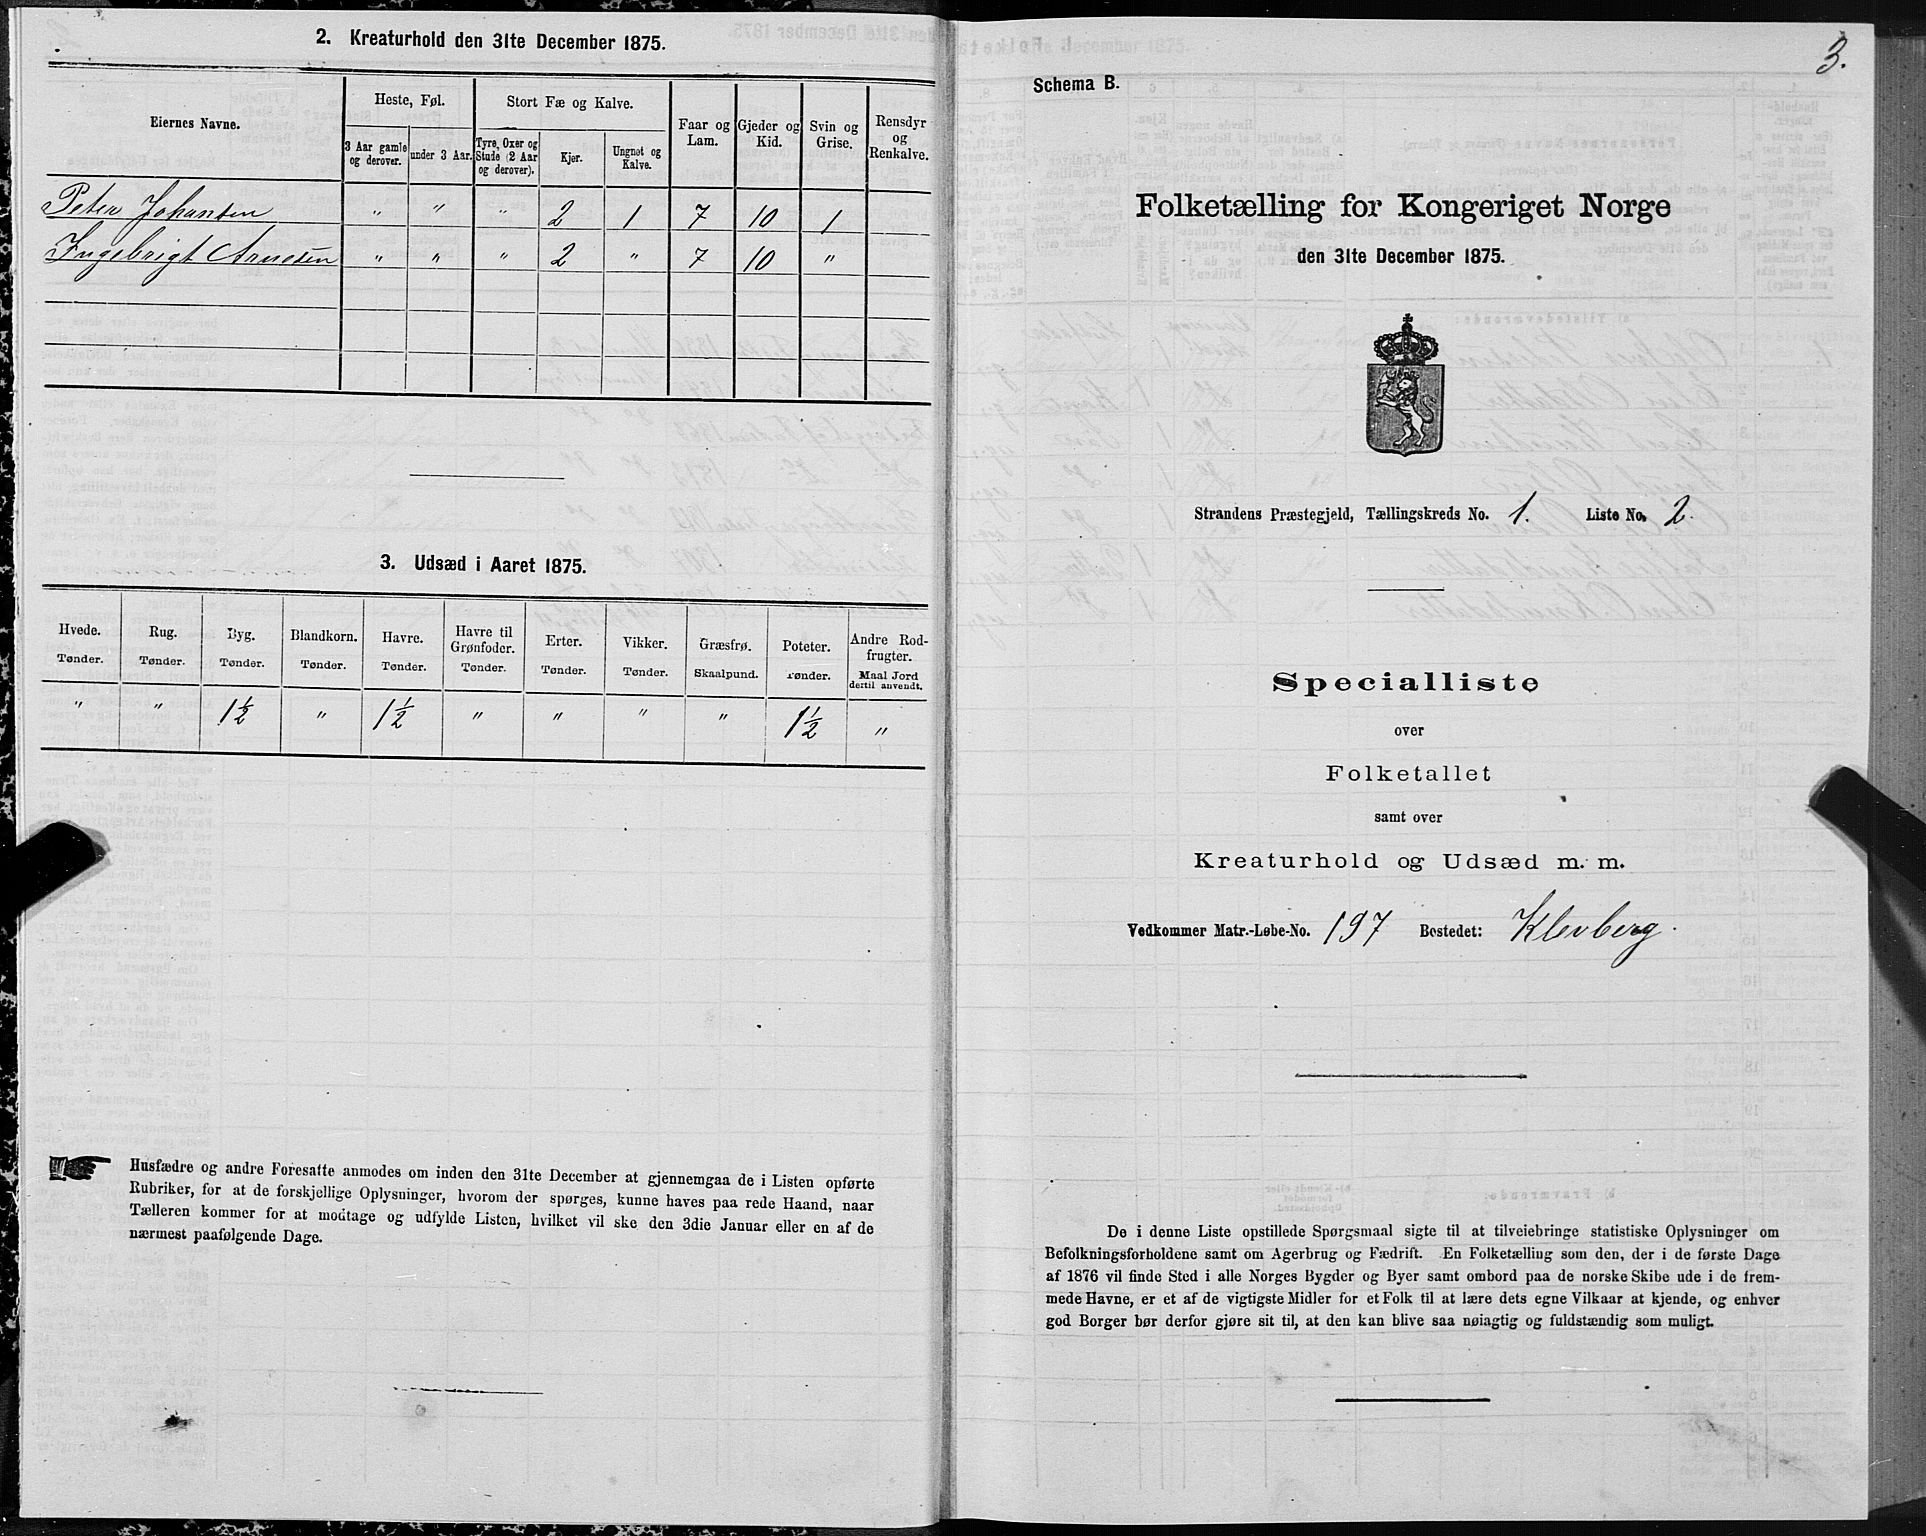 2. Kreaturhold den 31te December 1875.
Eiernes Navne.
Heste, Føl.
Stort Fæ og Kalve.
Faar og Lam.
Gjeder og Kid.
Svin og Grise.
Rensdyr og Renkalve.
3 Aar gamle og derover.
under 3 Aar.
Tyre, Oxer og Stude (2 Aar og derover).
Kjør.
Ungnøt og Kalve.
Peter Johansen " " " 2 1 7 10 1
Ingebrigt Arnesen " " " 2 " 7 10 "
3. Udsæd i Aaret 1875.
Hvede. Rug. Byg. Blandkorn. Havre. Havre til Grønfoder. Erter. Vikker. Græsfrø. Poteter. Andre Rodfrugter.
Tønder. Tønder. Tønder. Tønder. Tønder. Tønder. Tønder. Tønder. Skaalpund. Tønder. Maal Jord dertil anvendt.
" " 1½ " 1½ " " " " 1½ "
Husfædre og andre Foresatte anmodes om inden den 31te December at gjennemgaa de i Listen opførte
Rubriker, for at de forskjellige Oplysninger, hvorom der spørges, kunne haves paa rede Haand, naar
Tælleren kommer for at modtage og udfylde Listen, hvilket vil ske den 3die Januar eller en af de
nærmest paafølgende Dage.
3.
Schema B.
Folketælling for Kongeriget Norge
den 31te December 1875.
Strandens Præstegjeld, Tællingskreds No. 1. Liste No. 2.
Specialliste
over
Folketallet
samt over
Kreaturhold og Udsæd m. m.
Vedkommer Matr.-Løbe-No. 197 Bostedet: Klevberg.
De i denne Liste opstillede Spørgsmaal sigte til at tilveiebringe statistiske Oplysninger om
Befolkningsforholdene samt om Agerbrug og Fædrift. En Folketælling som den, der i de første Dage
af 1876 vil finde Sted i alle Norges Bygder og Byer samt ombord paa de norske Skibe ude i de frem-
mede Havne, er et af de vigtigste Midler for et Folk til at lære dets egne Vilkaar at kjende, og enhver
god Borger bør derfor gjøre sit til, at den kan blive saa nøiagtig og fuldstændig som muligt.